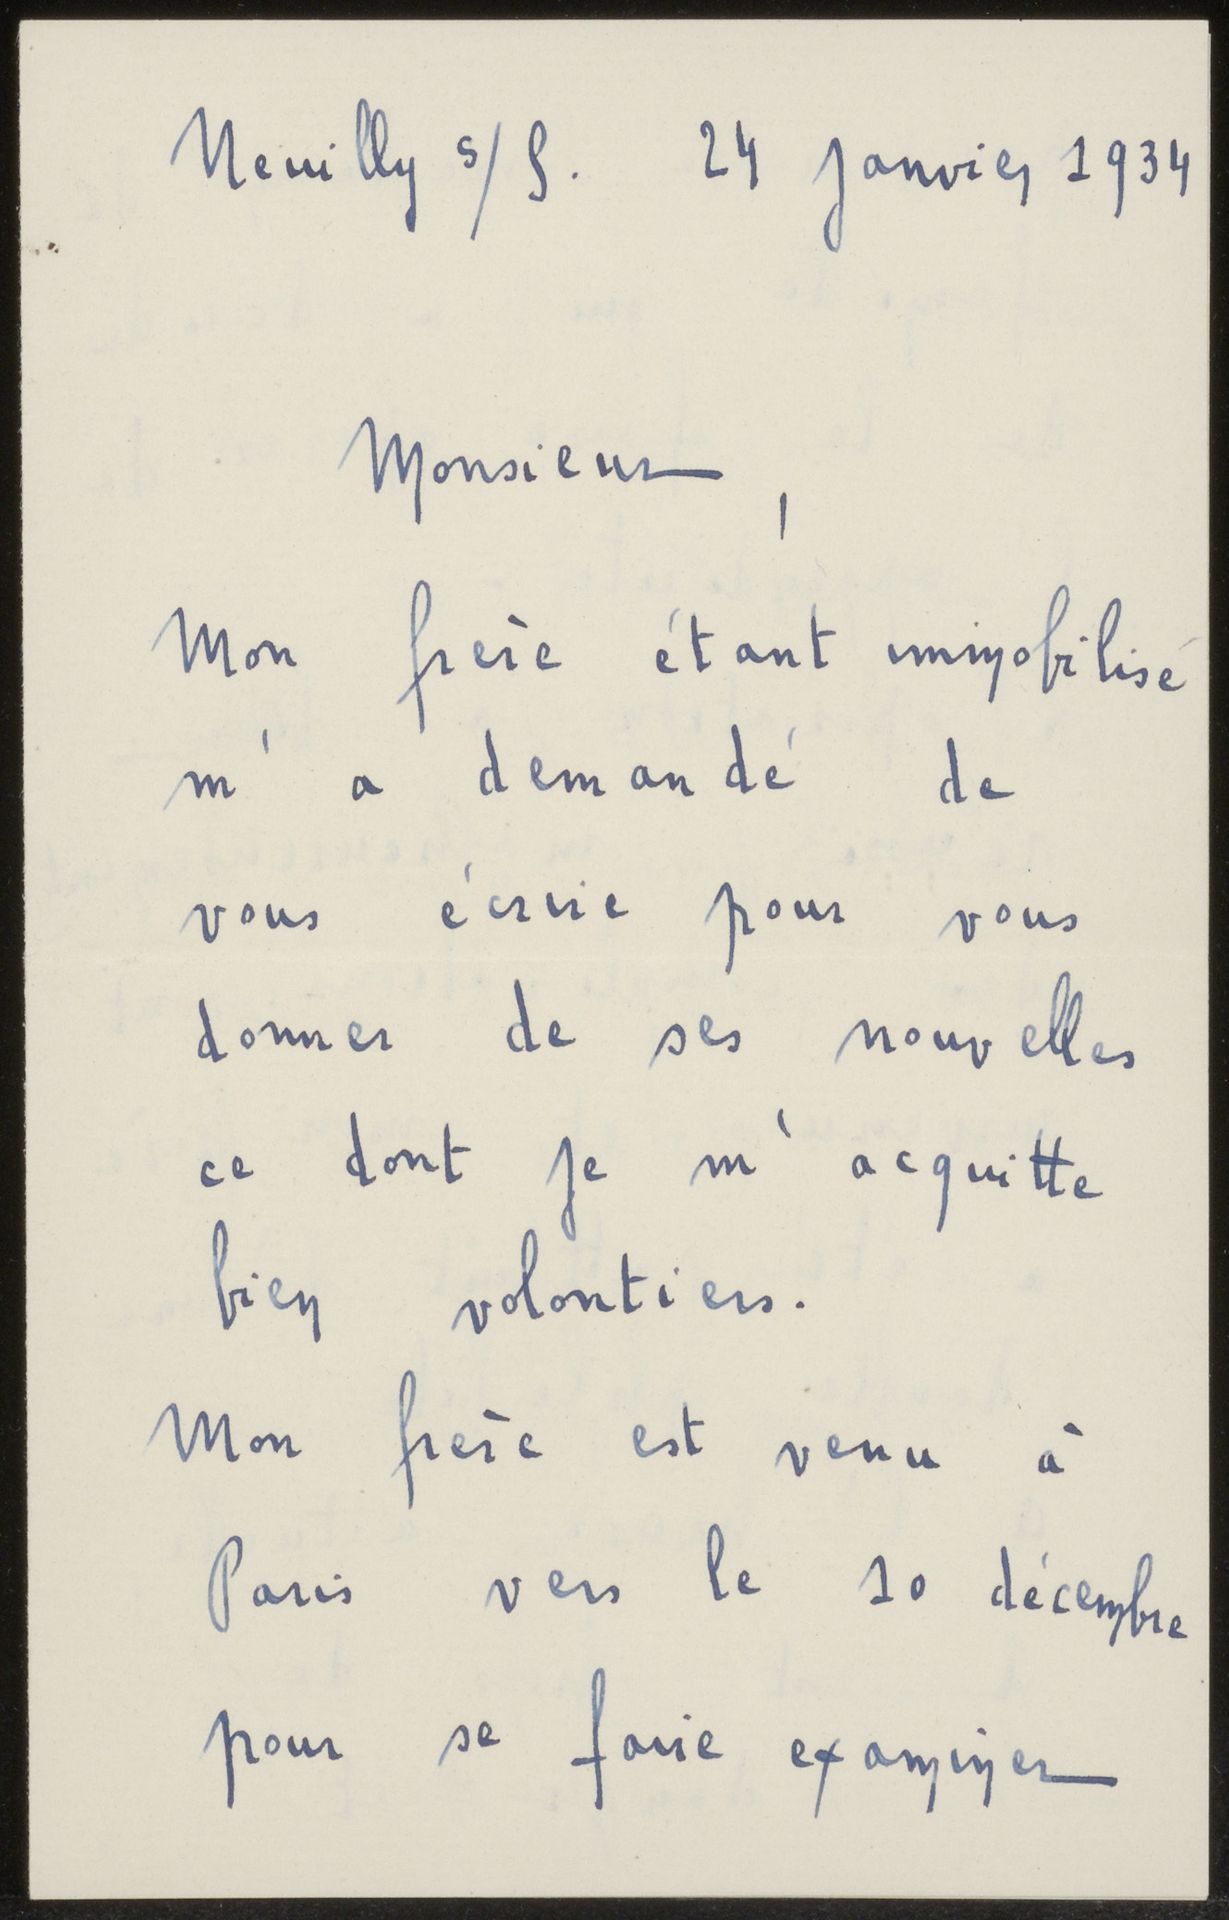 Neuilly s/S. 24 janvier 1934
Monsieur,
Mon frère étant immobilisé
m'a demandé de
vous écrire pour vous
donner de ses nouvelles
ce dont je m'acquitte
bien volontiers.
Mon frère est venu à
Paris vers le 10 décembre
pour se faire examiner